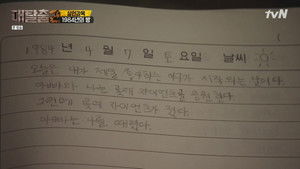 대탈출
1984년의 방
tvN
1984 년 4 월 7 일 토 요일 날씨
오늘은 내가 제일 좋아하는 야구가 시작되는 날이다.
아빠와 나는 롯데 자이언츠를 응원한다.
그런데 롯데 자이언츠가 졌다.
아빠는 나를 때렸다.